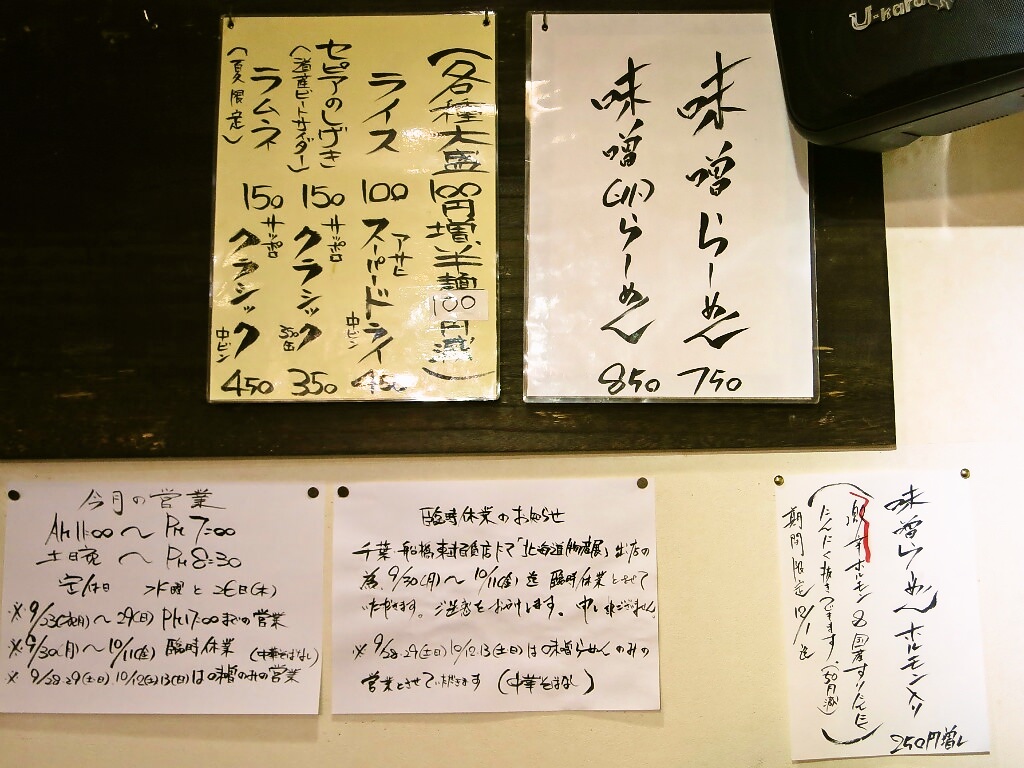 味噌らーめん 750
味噌(小)らーめん 850
(各種大盛100円増、半麺100円減)
ライス 100
セピアのしげき
(道産ビートサイダー) 150
ラムネ
(夏限定) 150
アサヒ
スーパードライ
中ビン 450
サッポロ
クラシック
350缶 350
サッポロ
クラシック
中ビン 450
U-kara
今月の営業
AM 11:00 〜 PM 7:00
土日祝 〜 PM 8:30
定休日 水曜と26日(木)
※9/23(祝月)〜29(日) PM 17:00までの営業
※9/30(月)〜10/11(金) 臨時休業 (中華そばなし)
※9/28.29(土日)10/12(土)13(日)は味噌のみの営業
臨時休業のお知らせ
千葉・船橋東武百貨店にて「北海道物産展」出店の
為、9/30(月)〜10/11(金)迄 臨時休業とさせて
いただきます。ご迷惑をおかけします。申し訳ございません。
※9/28.29(土日)10/12.13(土日)は味噌らーめんのみの
営業とさせていただきます (中華そばなし)
味噌らーめん ホルモン入り
250円増し
(激辛ホルモン & 国産すりにんにく
にんにく抜きできます。(50円減))
期間限定 12/1迄